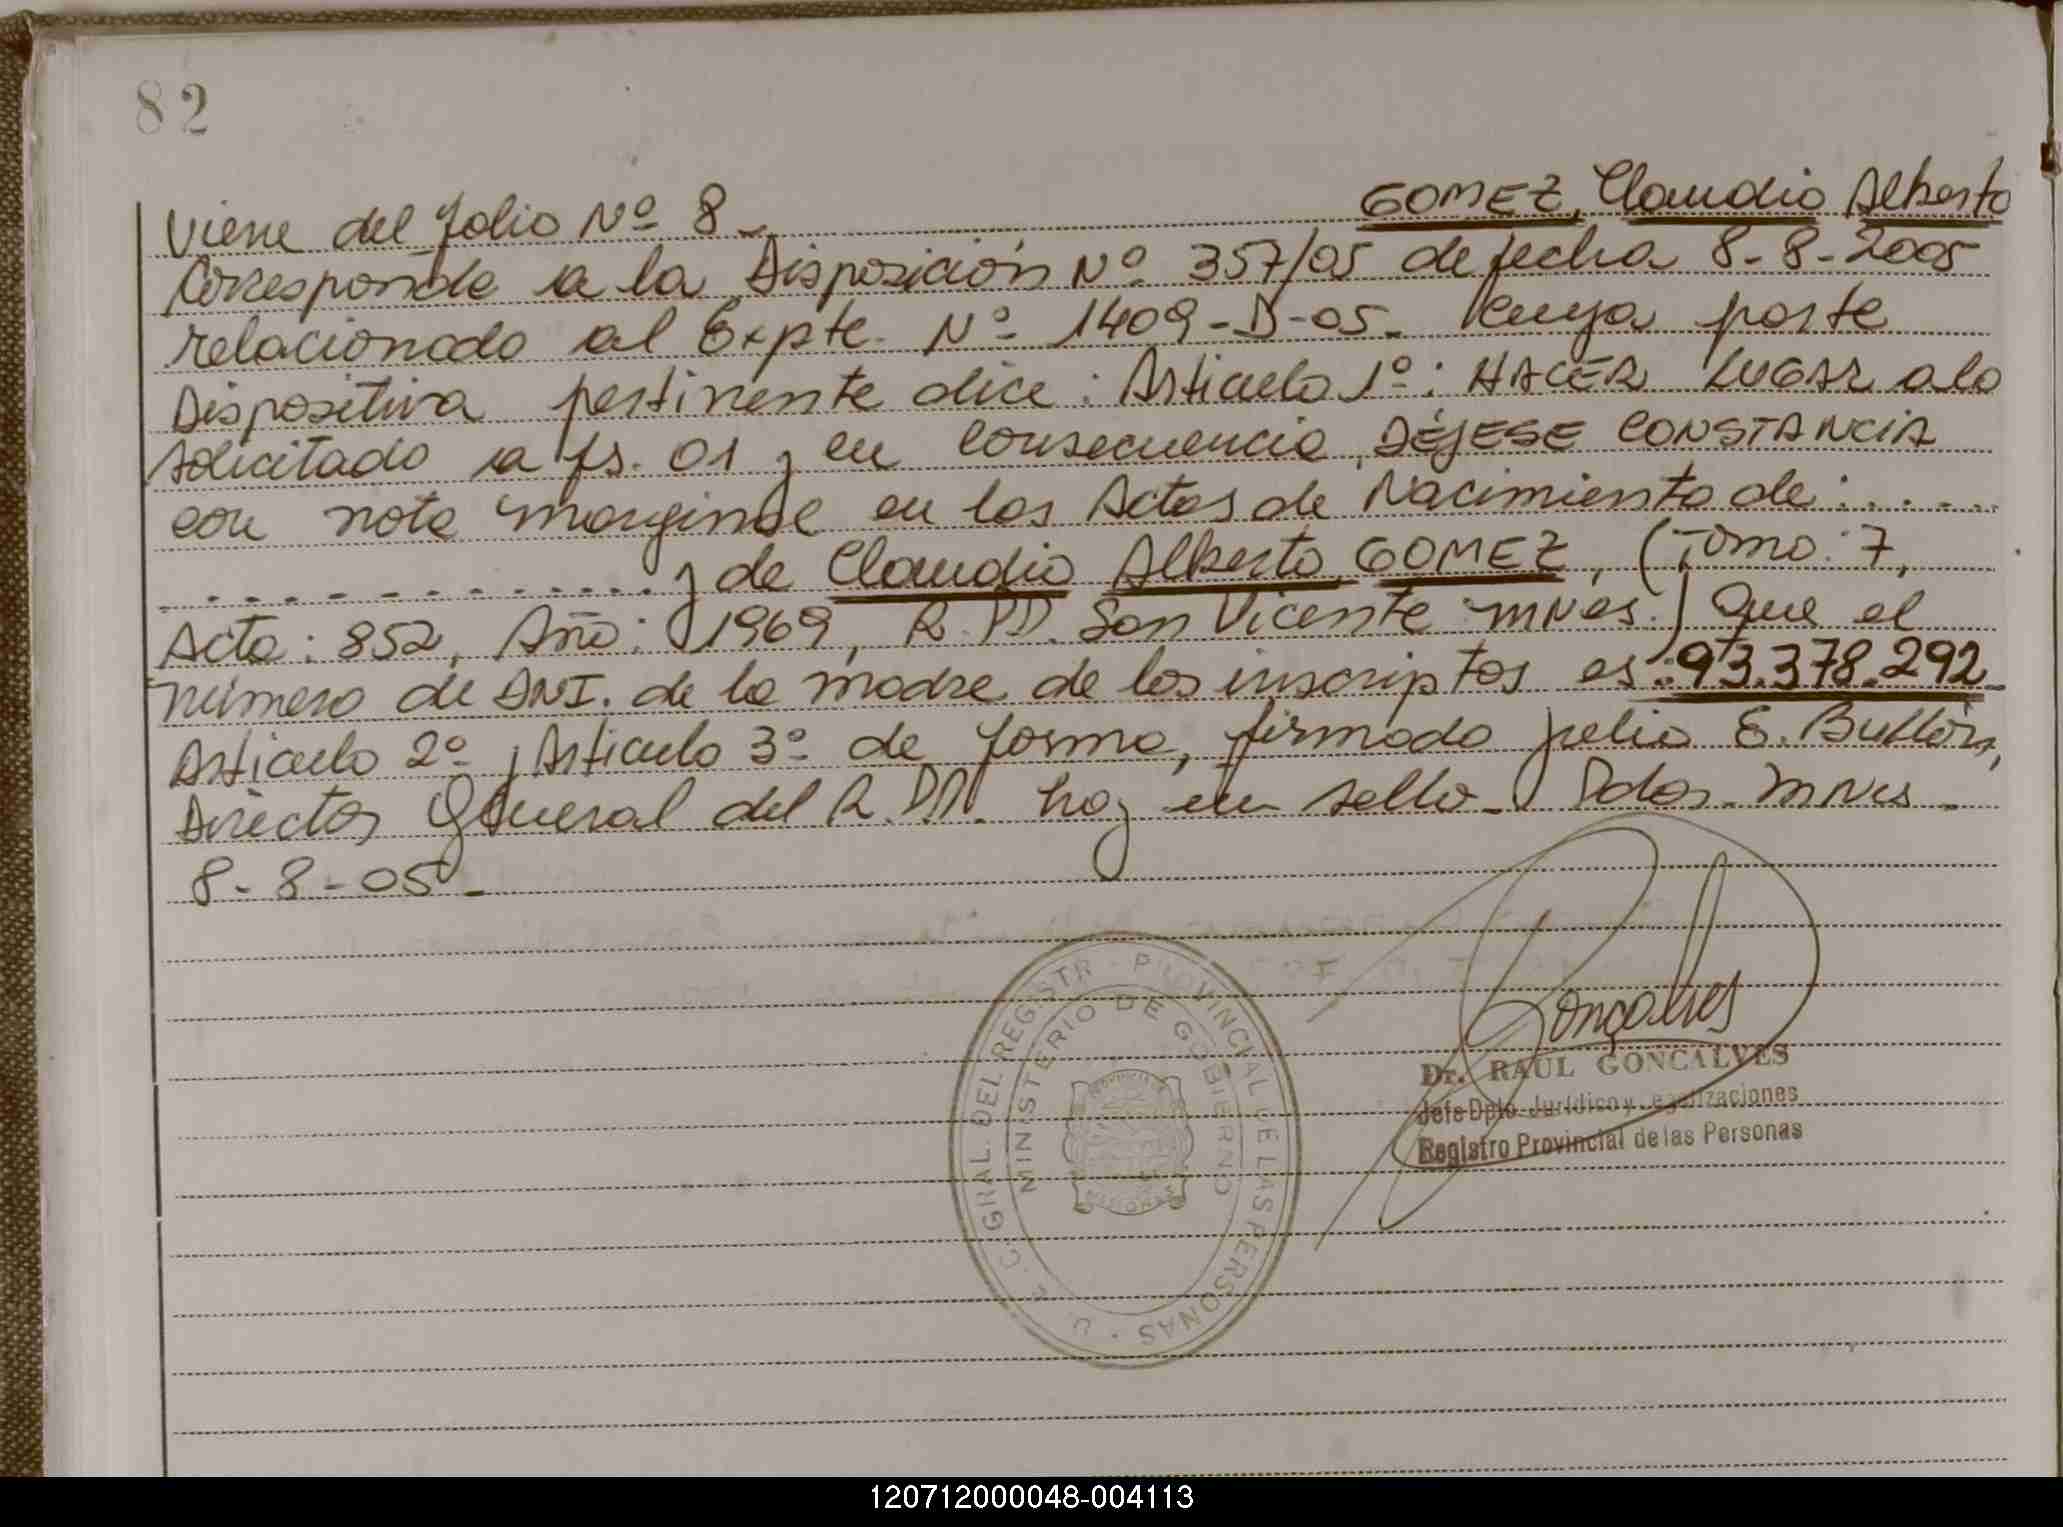 82
Viene del folio Nº 8 - GOMEZ, Claudio Alberto
Corresponde a la Disposición Nº 357/05 de fecha 8-8-2005
relacionado al Expte. Nº 1409-D-05. Cuya parte
Dispositiva pertinente dice: Articulo 1º: HACER LUGAR a lo
solicitado a fs. 01 y en consecuencia, DÉJESE CONSTANCIA
con nota marginal en las Actas de Nacimiento de: . . . . .
. . . . . . . . . . . . . . y de Claudio Alberto GOMEZ, (Tomo: 7,
Acta: 852, Año: 1969, R.PP. San Vicente Mnes.) Que el
número de DNI. de la madre de los inscriptos es: 93.378.292-
Articulo 2º y Articulo 3º de forma, firmado Julio E.
Director General del R.PP. hay un sello - Pdas. Mnes -
8-8-05 -
Gonçalves
Dr. RAUL GONCALVES
Jefe Dpto. Jurídico y Legalizaciones
Registro Provincial de las Personas
GRAL. DEL REGISTR · PROVINCIAL DE LAS PERSONAS ·
MINISTERIO DE GOBIERNO
120712000048-004113